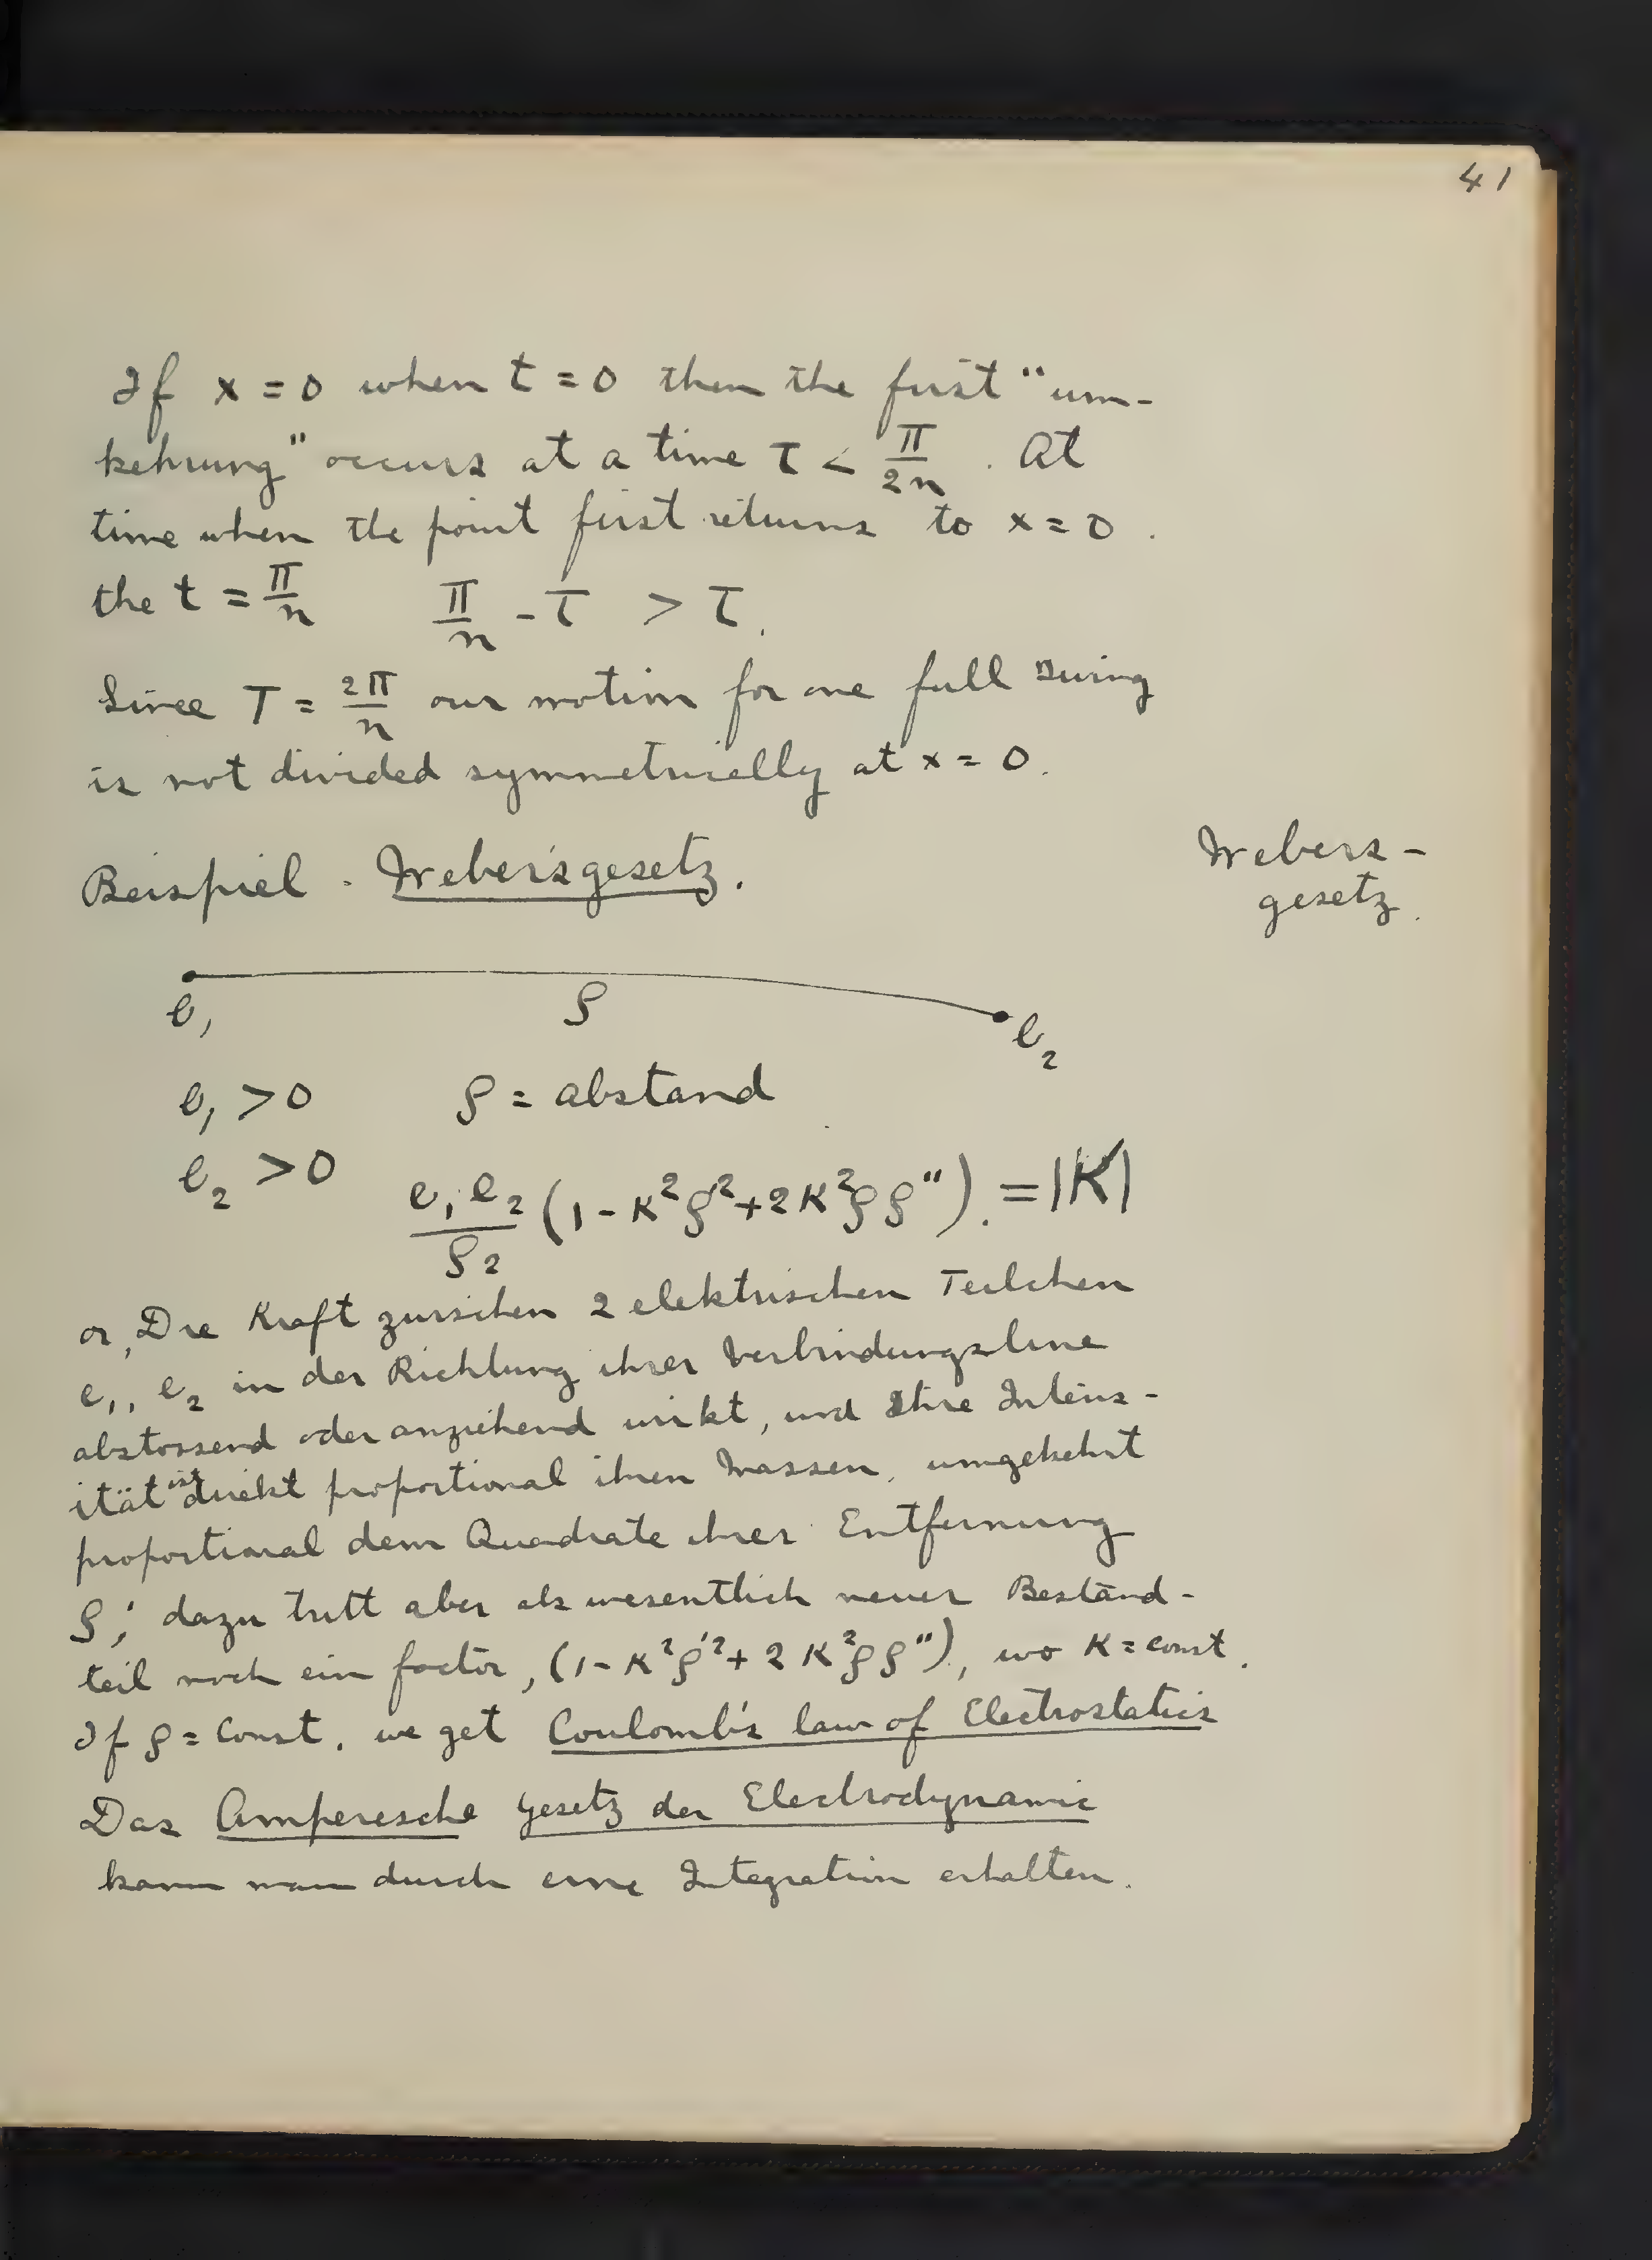 41
If x = 0 when t = 0 then the first "um-
kehrung" occurs at a time τ < π/2n . At
time when the point first returns to x = 0 .
the t = π/n π/n - τ > τ.
Since T = 2π/n our motion for one full swing
is not divided symmetrically at x = 0.
Beispiel - Weber'sgesetz.
Webers-
gesetz.
e₁ ρ e₂
e₁ > 0 ρ = abstand
e₂ > 0
e₁e₂/ρ² (1 - κ²ρ'² + 2κ²ρρ'') . = |K|
or, Die Kraft zwischen 2 elektrischen Teilchen
e₁, e₂ in der Richtung ihrer Verbindungsline
abstossend oder anziehend wirkt, und Ihre Intens-
ität ist direkt proportional ihren Massen, umgekehrt
proportional dem Quadrate ihrer Entfernung
ρ; dazu tritt aber als wesentlich neuer Bestand-
teil noch ein factor, (1 - κ²ρ'² + 2κ²ρρ''), wo κ = const.
If ρ = const. we get Coulomb's law of Electrostatics
Das Amperesche Gesetz der Electrodynamic
kann man durch eine Integration erhalten.